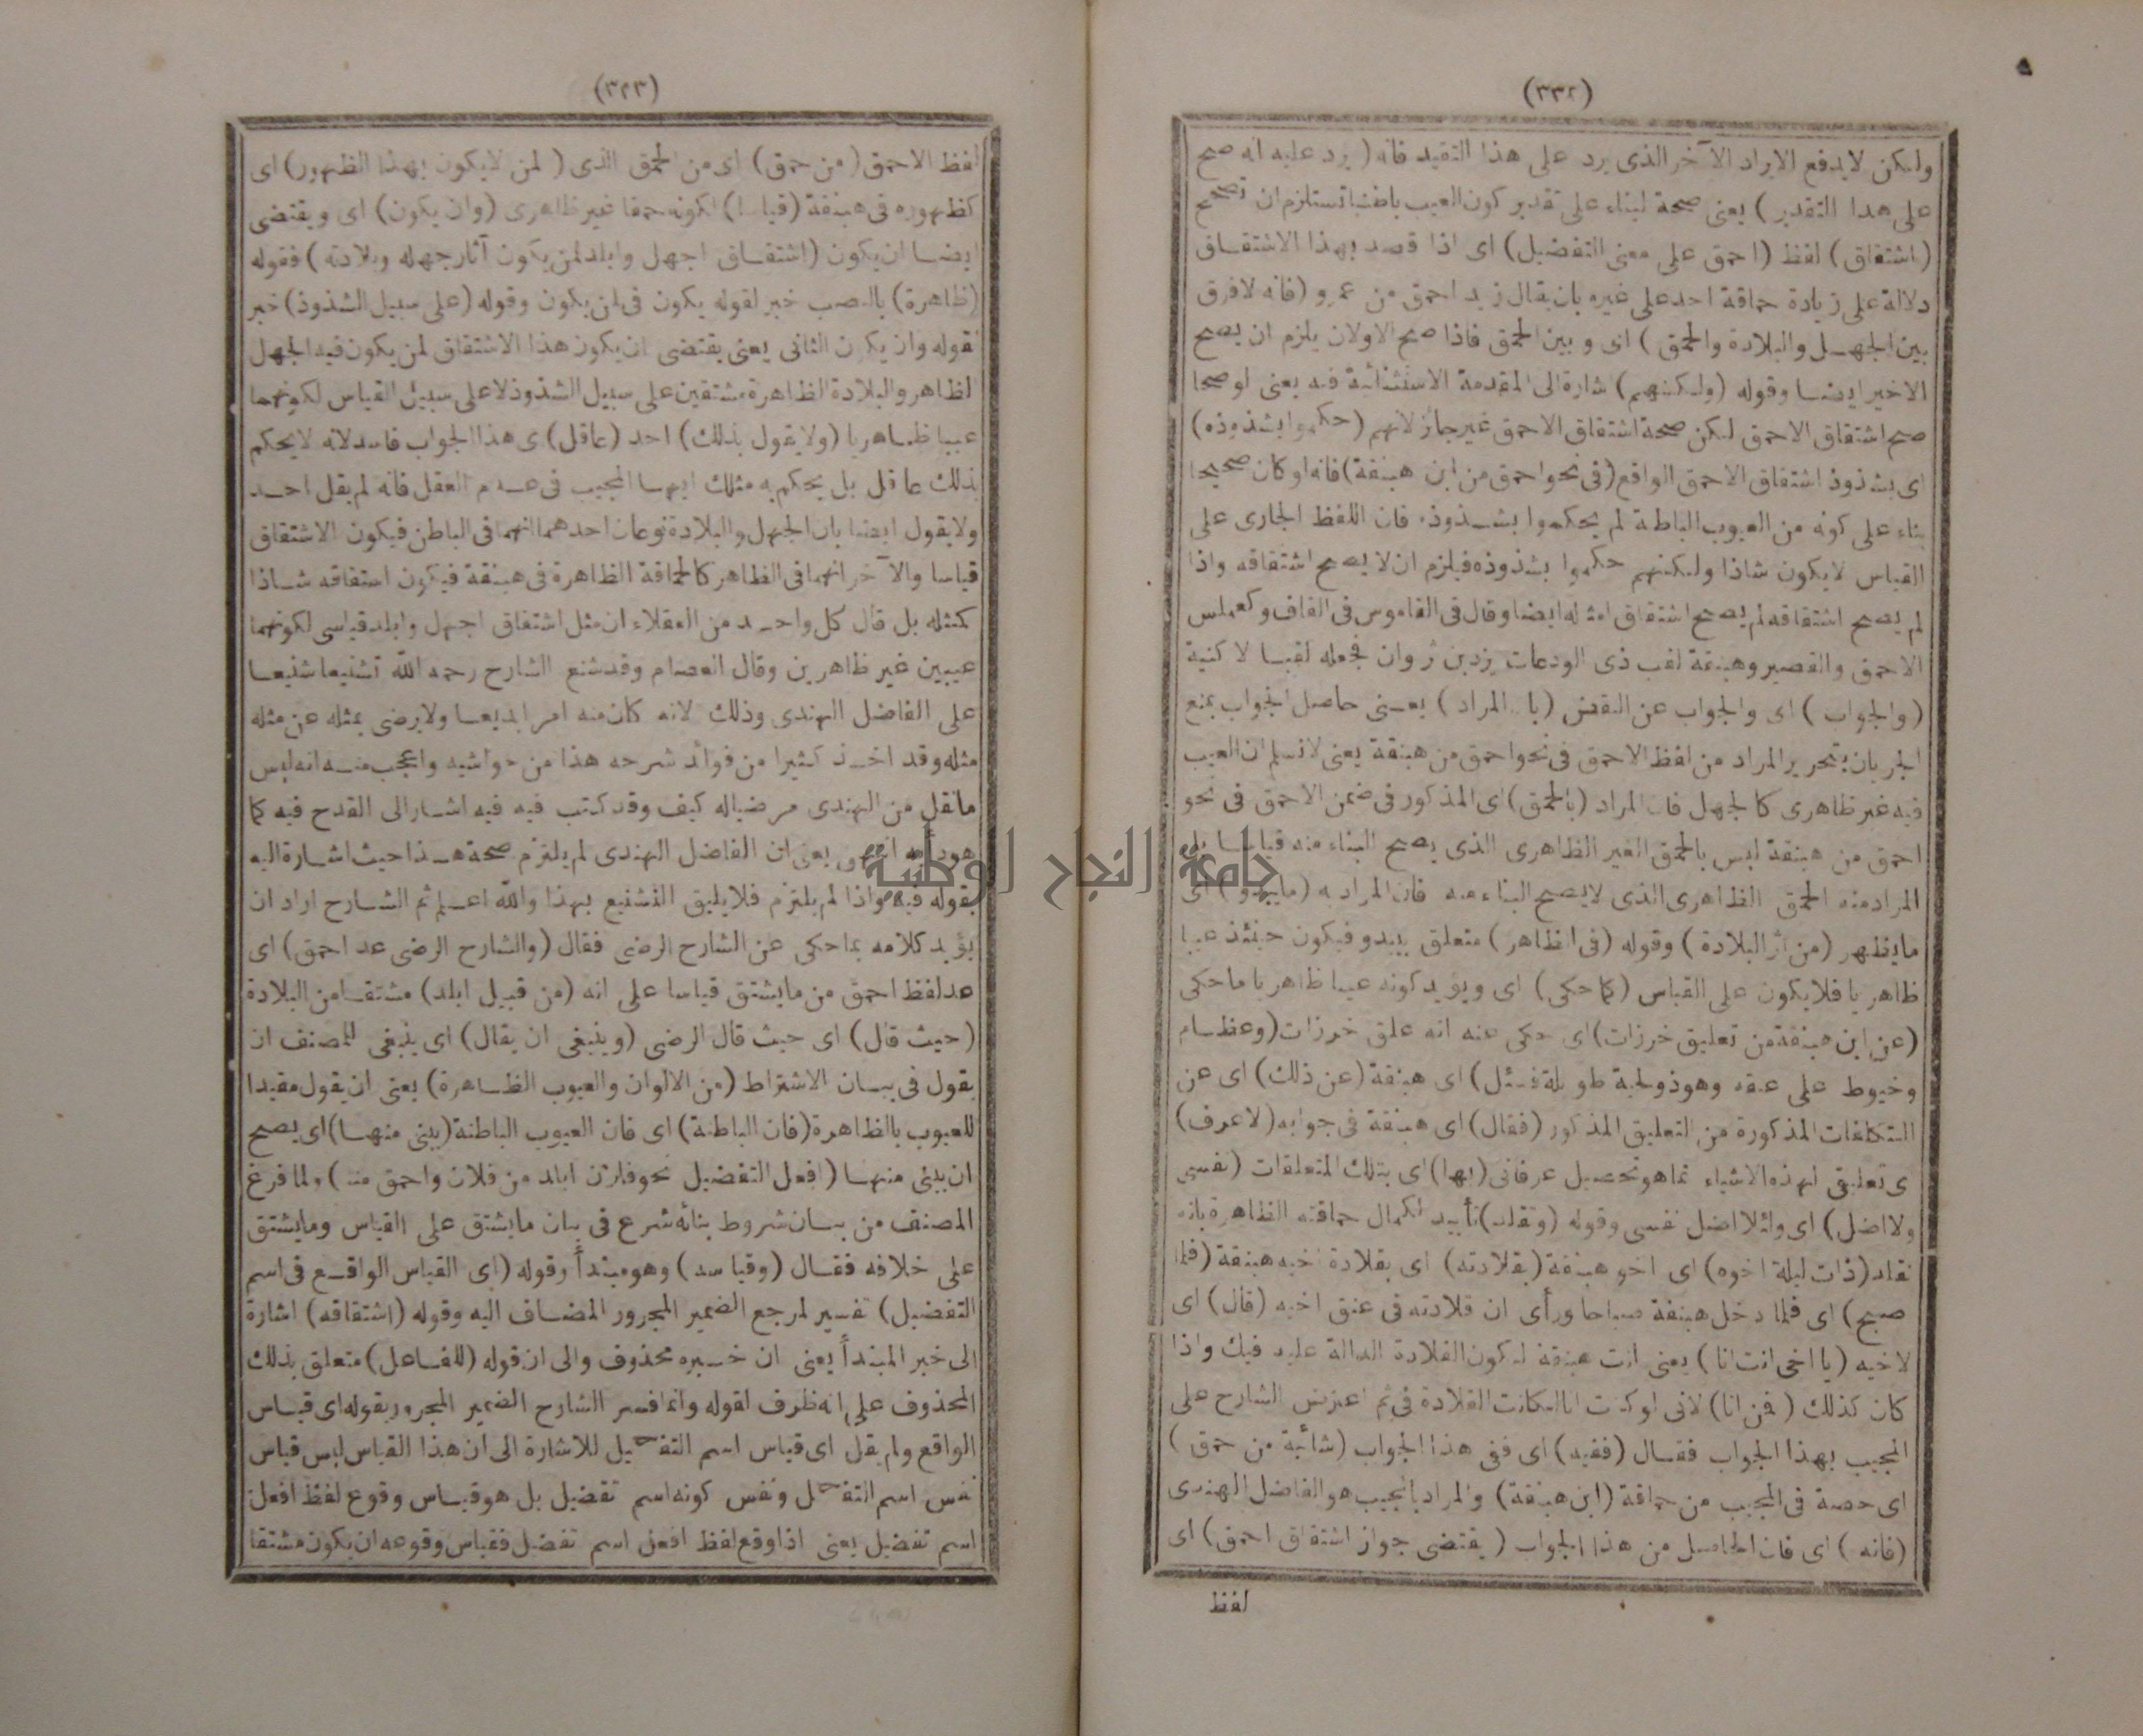 (٣٣٢)
ولكن لايدفع الايراد الآخر الذى يرد على هذا التقيد فانه ( يرد عليه انه صح
على هذا التقدير ) يعنى صحة لبناء على تقدير كون العيب باطنيا تستلزم ان تصحح
(اشتقاق) لفظ (احمق على معنى التفضيل) اى اذا قصد بهذا الاشتقاق
دلالة على زيادة حماقة احد على غيره بان يقال زيد احمق من عمرو (فانه لافرق
بين الجهل والبلادة والحمق ) اى وبين الحمق فاذا صح الاولان يلزم ان يصح
الاخير ايضا وقوله (ولكنهم) اشارة الى المقدمة الاستثنائية فيه يعنى لو صحا
صح اشتقاق الاحمق لكن صحة اشتقاق الاحمق غير جائز لانهم (حكموا بشذوذه)
اى بشذوذ اشتقاق الاحمق الواقع (فى نحو احمق من ابن هبنقة) فانه لو كان صحيحا
بناء على كونه من العيوب الباطنة لم يحكموا بشذوذه فان اللفظ الجارى على
القياس لايكون شاذا ولكنهم حكموا بشذوذه فيلزم ان لايصح اشتقاقه واذا
لم يصح اشتقاقه لم يصح اشتقاق امثاله ايضا وقال فى القاموس فى القاف وكعملس
الاحمق والقصير وهبنقة لقب ذى الودعات يزيد بن ثروان فجعله لقبا لا كنية
(والجواب ) اى والجواب عن النقض (بان المراد ) يعنى حاصل الجواب بمنع
الجريان بتحرير المراد من لفظ الاحمق فى نحو احمق من هبنقة يعنى لانسلم ان العيب
فيه غير ظاهرى كالجهل فان المراد (بالحمق) اى المذكور فى ضمن الاحمق فى نحو
احمق من هبنقة ليس بالحمق الغير الظاهرى الذى يصح البناء منه قياسا بل
المراد منه الحمق الظاهرى الذى لايصح البناء منه فان المراد به (مايبدو) اى
مايظهر (من اثر البلادة ) وقوله (فى الظاهر) متعلق بيبدو فيكون حينئذ عيبا
ظاهريا فلايكون على القياس (كما حكى) اى ويؤيد كونه عيبا ظاهريا ما حكى
(عن ابن هبنقة من تعليق خرزات) اى حكى عنه انه علق خرزات (وعظام
وخيوط على عنقه وهو ذو لحية طويلة فسئل) اى هبنقة (عن ذلك) اى عن
التكلفات المذكورة من التعليق المذكور (فقال) اى هبنقة فى جوابه (لاعرف)
اى تعليقى لهذه الاشياء انما هو تحصيل عرفانى (بها) اى بتلك المتعلقات (نفسى
ولااضل) اى ولئلا اضل نفسى وقوله (وتقلد) تأييد لكمال حماقته الظاهرة بانه
تقلد (ذات ليلة اخوه) اى اخو هبنقة (بقلادته) اى بقلادة اخيه هبنقة (فلما
صبح) اى فلما دخل هبنقة صباحا ورأى ان قلادته فى عنق اخيه (قال) اى
لاخيه (يا اخى انت انا) يعنى انت هبنقة لكون القلادة الدالة عليه فيك واذا
كان كذلك (فمن انا) لانى لو كنت انا لكانت القلادة فى ثم اعترض الشارح على
المجيب بهذا الجواب فقال (ففيه) اى ففى هذا الجواب (شائبة من حمق )
اى حصة فى المجيب من حماقة (ابن هبنقة) والمراد بالمجيب هو الفاضل الهندى
(فانه) اى فان الحاصل من هذا الجواب ( يقتضى جواز اشتقاق احمق) اى
لفظ
(٣٢٣)
لفظ الاحمق (من حمق) اى من الحمق الذى ( لمن لايكون بهذا الظهور) اى
كظهوره فى هبنقة (قياسا) لكونه حمقا غير ظاهرى (وان يكون) اى ويقتضى
ايضا ان يكون (اشتقاق اجهل وابلد لمن يكون آثار جهله وبلادته ) فقوله
(ظاهرة) بالنصب خبر لقوله يكون فى لمن يكون وقوله (على سبيل الشذوذ) خبر
لقوله وان يكون الثانى يعنى يقتضى ان يكون هذا الاشتقاق لمن يكون فيه الجهل
الظاهر والبلادة الظاهرة مشتقين على سبيل الشذوذ لا على سبيل القياس لكونهما
عيبا ظاهريا (ولا يقول بذلك) احد (عاقل) اى هذا الجواب فاسد لانه لايحكم
بذلك عاقل بل يحكم به مثلك ايها المجيب فى عدم العقل فانه لم يقل احد
ولا يقول ايضا بان الجهل والبلادة نوعان احدهما انهما فى الباطن فيكون الاشتقاق
قياسا والآخر انهما فى الظاهر كالحماقة الظاهرة فى هبنقة فيكون اشتقاقه شاذا
كمثله بل قال كل واحد من العقلاء ان مثل اشتقاق اجهل وابلد قياسى لكونهما
عيبين غير ظاهرين وقال العصام وقد شنع الشارح رحمه الله تشنيعا شنيعا
على الفاضل الهندى وذلك لانه كان منه امرا بديعا ولا يرضى بمثله عن مثله
مثله وقد اخذ كثيرا من فوائد شرحه هذا من حواشيه والعجب منه انه ليس
مانقل من الهندى مرضياله كيف وقد كتب فيه فيه اشار الى القدح فيه كما
هو دأبه انتهى يعنى ان الفاضل الهندى لم يلتزم صحة هذا حيث اشارة اليه
بقوله فيه واذا لم يلتزم فلا يليق التشنيع بهذا والله اعلم ثم الشارح اراد ان
يؤيد كلامه بما حكى عن الشارح الرضى فقال (والشارح الرضى عد احمق) اى
عد لفظ احمق من مايشتق قياسا على انه (من قبيل ابلد) مشتقا من البلادة
(حيث قال) اى حيث قال الرضى (وينبغى ان يقال) اى ينبغى للمصنف ان
يقول فى بيان الاشتراط (من الالوان والعيوب الظاهرة) يعنى ان يقول مقيدا
للعيوب بالظاهرة (فان الباطنة) اى فان العيوب الباطنة (يبنى منها) اى يصح
ان يبنى منها (افعل التفضيل نحو فلان ابلد من فلان واحمق منه ) ولما فرغ
المصنف من بيان شروط بنائه شرع فى بيان مايشتق على القياس ومايشتق
على خلافه فقال (وقياسه ) وهو مبتدأ وقوله (اى القياس الواقع فى اسم
التفضيل) تفسير لمرجع الضمير المجرور المضاف اليه وقوله (اشتقاقه) اشارة
الى خبر المبتدأ يعنى ان خبره محذوف والى ان قوله (للفاعل) متعلق بذلك
المحذوف على انه ظرف لقوله وانما فسر الشارح الضمير المجرور بقوله اى قياس
الواقع ولم يقل اى قياس اسم التفضيل للاشارة الى ان هذا القياس ليس قياس
نفس اسم التفضيل ونفس كونه اسم تفضيل بل هو قياس وقوع لفظ افعل
اسم تفضيل يعنى اذا وقع لفظ افعل اسم تفضيل فقياس وقوعه ان يكون مشتقا
جامعة النجاح الوطنية